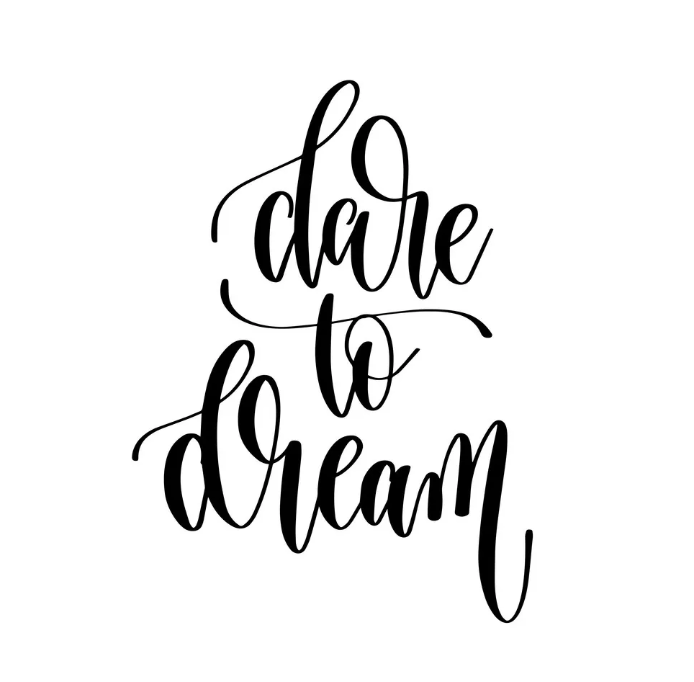 dare
to
dream